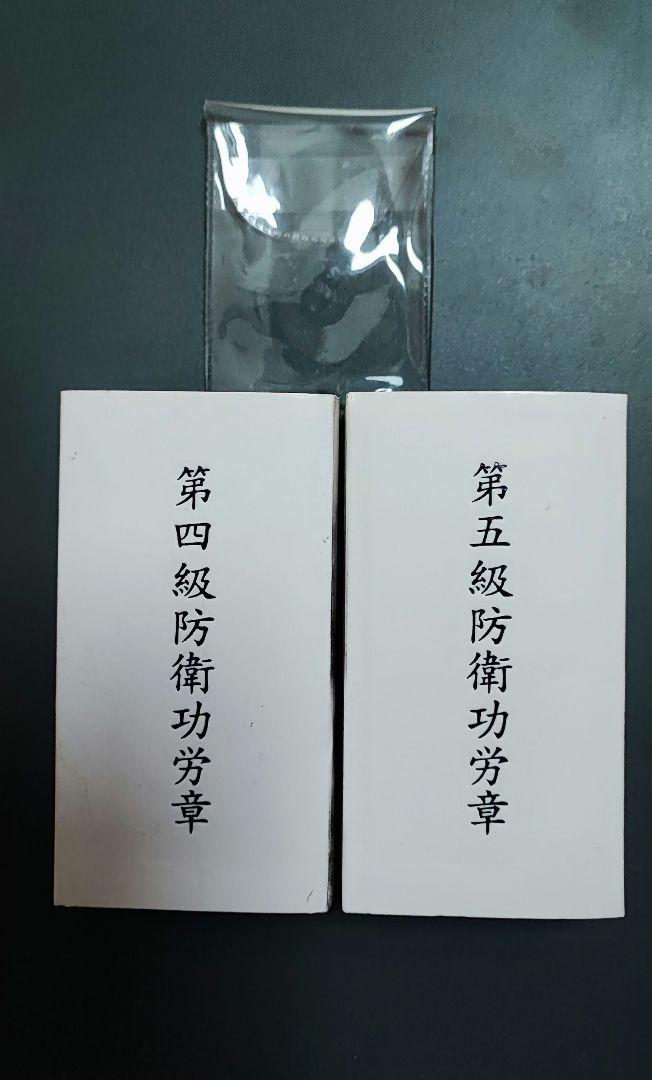 第四級防衛功労章
第五級防衛功労章